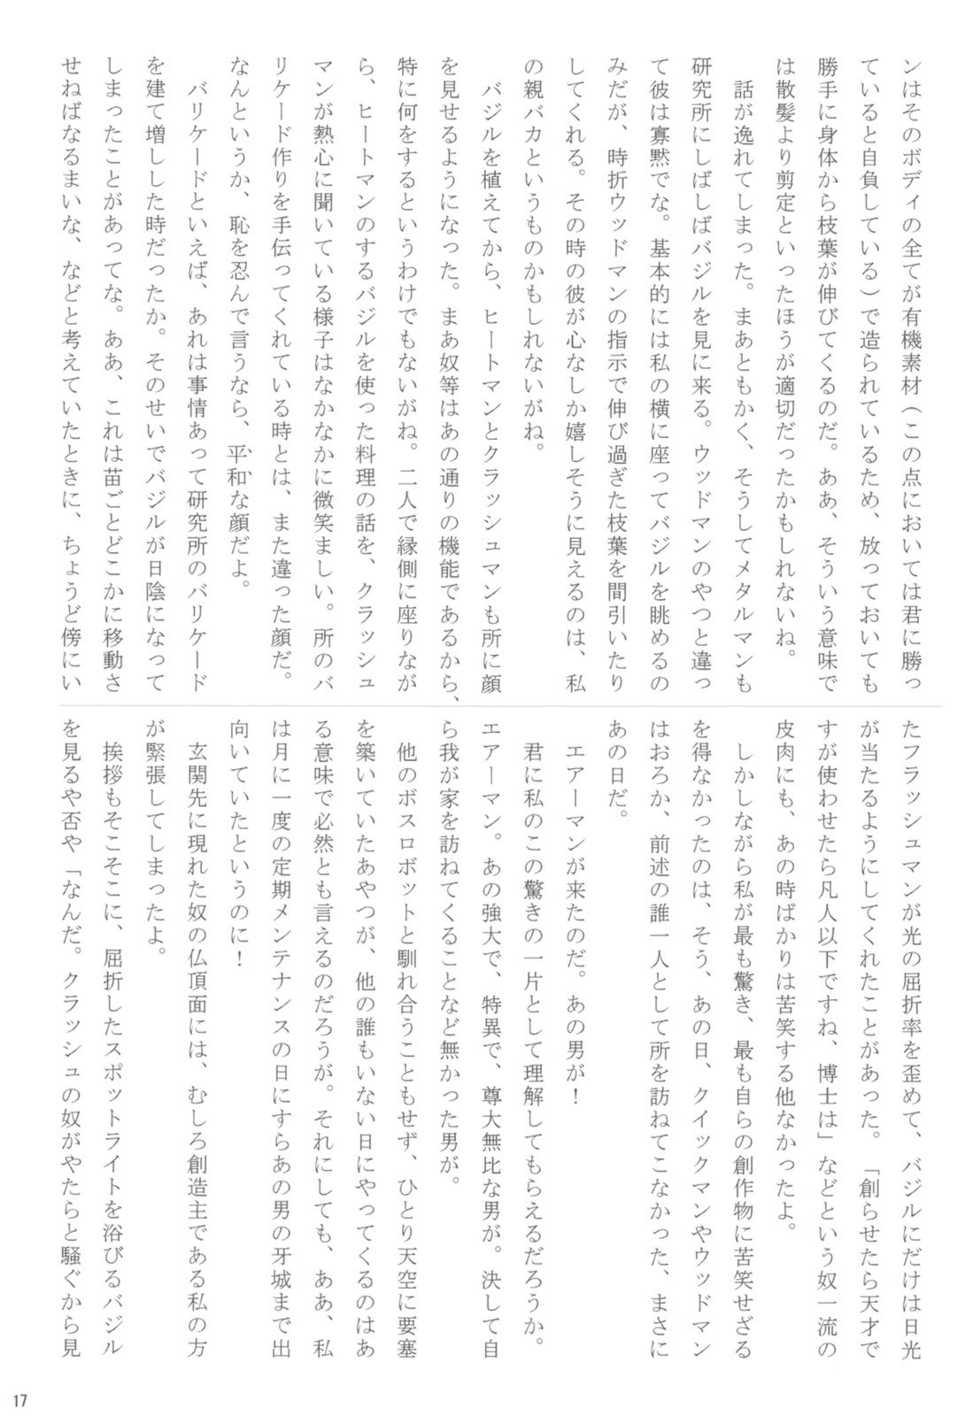 ンはそのボディの全てが有機素材（この点においては君に勝っ
ていると自負している）で造られているため、放っておいても
勝手に身体から枝葉が伸びてくるのだ。ああ、そういう意味で
は散髪より剪定といったほうが適切だったかもしれないね。
　話が逸れてしまった。まあともかく、そうしてメタルマンも
研究所にしばしばバジルを見に来る。ウッドマンのやつと違っ
て彼は寡黙でな。基本的には私の横に座ってバジルを眺めるの
みだが、時折ウッドマンの指示で伸び過ぎた枝葉を間引いたり
してくれる。その時の彼が心なしか嬉しそうに見えるのは、私
の親バカというものかもしれないがね。
　バジルを植えてから、ヒートマンとクラッシュマンも所に顔
を見せるようになった。まあ奴等はあの通りの機能であるから、
特に何をするというわけでもないがね。二人で縁側に座りなが
ら、ヒートマンのするバジルを使った料理の話を、クラッシュ
マンが熱心に聞いている様子はなかなかに微笑ましい。所のバ
リケード作りを手伝ってくれている時とは、また違った顔だ。
なんというか、恥を忍んで言うなら、平和な顔だよ。
　バリケードといえば、あれは事情あって研究所のバリケード
を建て増しした時だったか。そのせいでバジルが日陰になって
しまったことがあってな。ああ、これは苗ごとどこかに移動さ
せねばなるまいな、などと考えていたときに、ちょうど傍にい
たフラッシュマンが光の屈折率を歪めて、バジルにだけは日光
が当たるようにしてくれたことがあった。「創らせたら天才で
すが使わせたら凡人以下ですね、博士は」などという奴一流の
皮肉にも、あの時ばかりは苦笑する他なかったよ。
　しかしながら私が最も驚き、最も自らの創作物に苦笑せざる
を得なかったのは、そう、あの日、クイックマンやウッドマン
はおろか、前述の誰一人として所を訪ねてこなかった、まさに
あの日だ。
　エアーマンが来たのだ。あの男が！
　君に私のこの驚きの一片として理解してもらえるだろうか。
エアーマン。あの強大で、特異で、尊大無比な男が。決して自
ら我が家を訪ねてくることなど無かった男が。
　他のボスロボットと馴れ合うこともせず、ひとり天空に要塞
を築いていたあやつが、他の誰もいない日にやってくるのはあ
る意味で必然とも言えるのだろうが。それにしても、ああ、私
は月に一度の定期メンテナンスの日にすらあの男の牙城まで出
向いていたというのに！
　玄関先に現れた奴の仏頂面には、むしろ創造主である私の方
が緊張してしまったよ。
　挨拶もそこそこに、屈折したスポットライトを浴びるバジル
を見るや否や「なんだ。クラッシュの奴がやたらと騒ぐから見
17